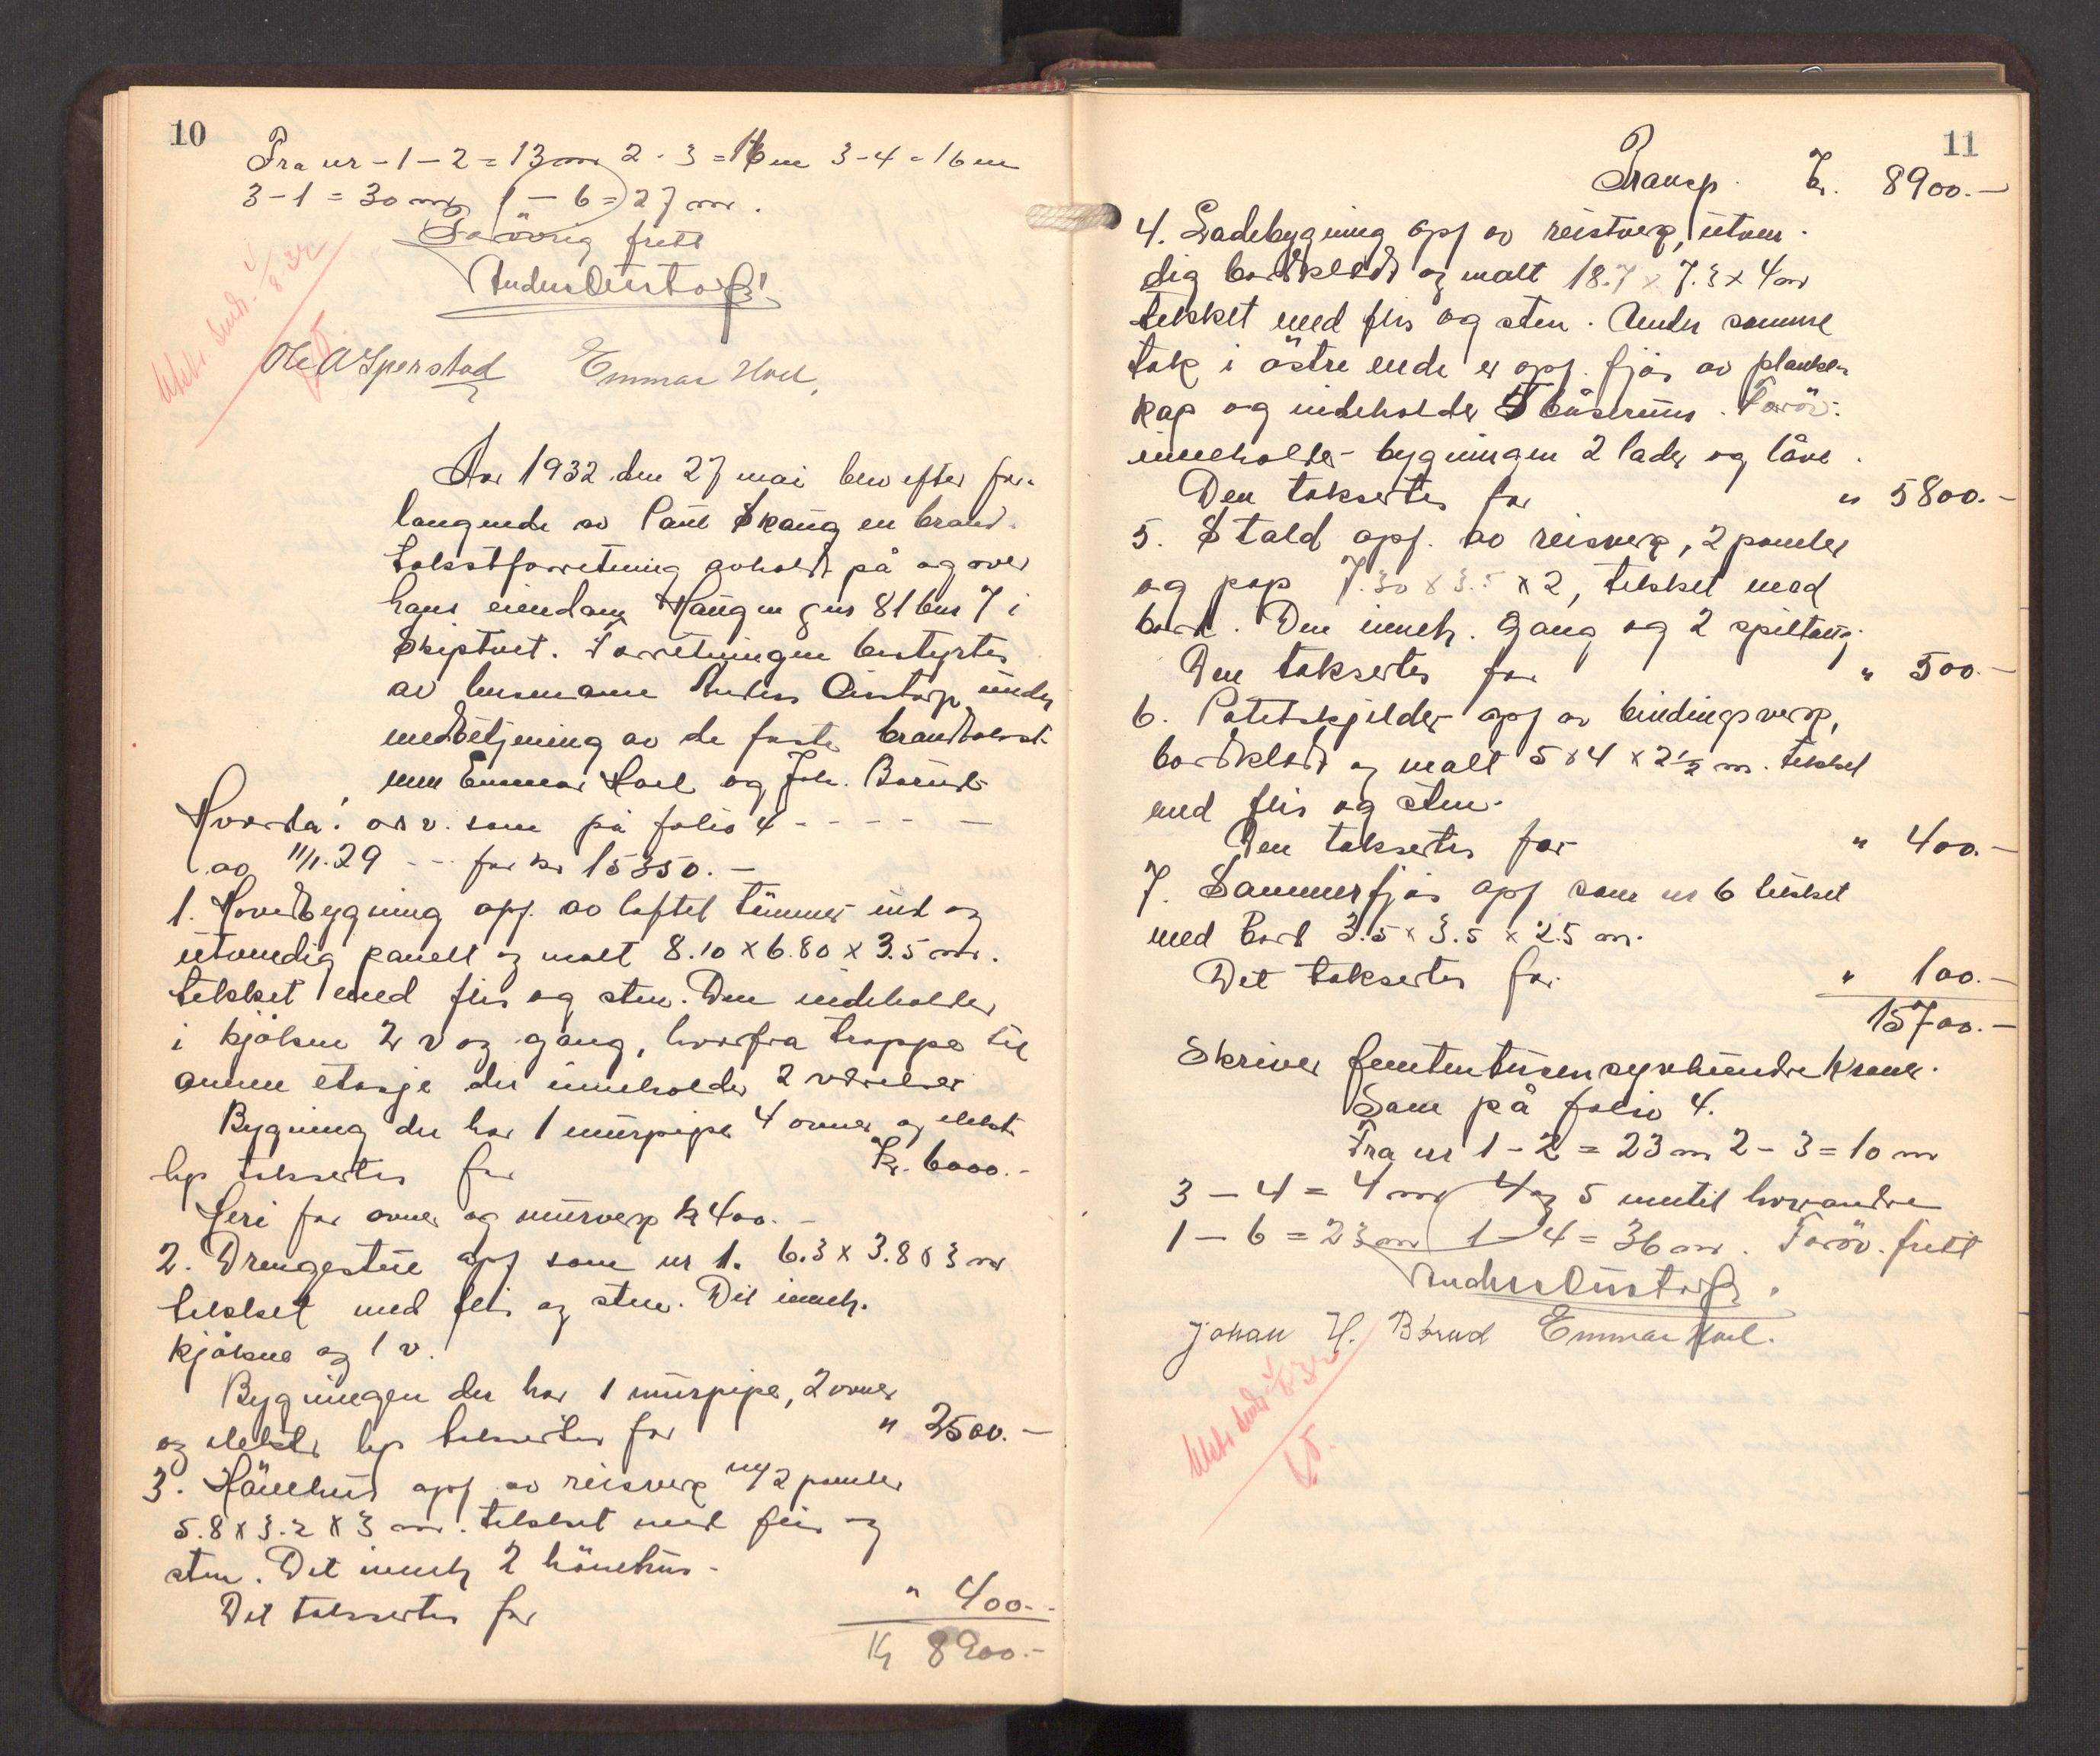 10
Fra nr - 1 - 2 = 13 m 2 - 3 = 16 m 3-4 = 16 m
3-1 = 30 m 1 - 6 = 27 m.
Forövrig fritt
Anders Austorp
Ole A Sperstad Emmar Hoel
Utskr. sendt 8/ 32
Aar 1932 den 27 mai blev efter for-
langende av Paul Skaug en brand-
takstforretning avholdt på og over
hans eiendom Haugen gnr 81 bnr 7 i
Skiptvet. Forretningen bestyrtes
av lensmann Anders Austorp under
medbetjening av de faste brandtakst-
menn Emmar Hoel og Joh. Börud
Hvorda! osv. som på folio 4 - - - - -
av 11/1.29 - - - for kr 15350. -
1. Hovedbygning opf. av laftet tömmer ind og
utvendig panelt og malt 8.10 x 6.80 x 3.5 m.
tekket med flis og sten. Den indeholder
i kjökken 2 v og gang, hvorfra trappe til
annen etasje der inneholder 2 værelser
Bygning der har 1 murpipe 4 ovner og elektr
lys takseres for Kr. 6000.-
Heri for ovner og murverk kr 400. -
2. Drengestue opf som nr 1. 6.3 x 3.8 x 3 m
tekket med flis og sten. Det inneh.
kjökken og 1 v.
Bygningen der har 1 murpipe, 2 ovner
og elektr lys takseres for " 2500. -
3. Hönehus opf av reisverk m/ 2 paneler
5.8 x 3.2 x 3 m. tekket med flis og
sten. Det inneh 2 hönehus -
Det takseres for " 400. -
Kr 8900.-
11
Transp. Kr. 8900. -
4. Ladebygning opf av reisverk, utven-
dig bordklædt og malt 18.7 x 7.3 x 4 m
tekket med flis og sten. Under samme
tak i östre ende er opf. fjös av planke-
kap og indeholder 5 båserum. Foröv.
inneholder bygningen 2 lader og låve.
Den takseres for " 5800. -
5. Stald opf. av reisverk, 2 paneler
og pap 7.30 x 3.5 x 2, tekket med
bord. Den inneh. gang og 2 spiltaug.
Den takseres for " 500. -
6. Potetskjelder opf av bindingsverk,
bordklædt og malt 5 x 4 x 2½ m. tekket
med flis og sten.
Den takseres for " 400. -
7. Sommerfjös opf som nr 6 tekket
med bord 3.5 x 3.5 x 2.5 m.
Det takseres for " 100. -
15700. -
Skriver femtentusensyvhundre kroner.
Som på folio 4.
Fra nr 1 - 2 = 23 m 2 - 3 = 10 m
3 - 4 = 4 m 4 og 5 inntil hverandre
1 - 6 = 23 m 1 - 4 = 36 m. Foröv. fritt
Anders Austorp.
Johan H. Börud Emmar Hoel.
Utskr. sendt /8 32